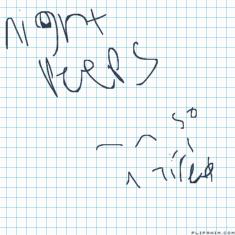 night
peeps
so
tired
FLIPANIM.COM